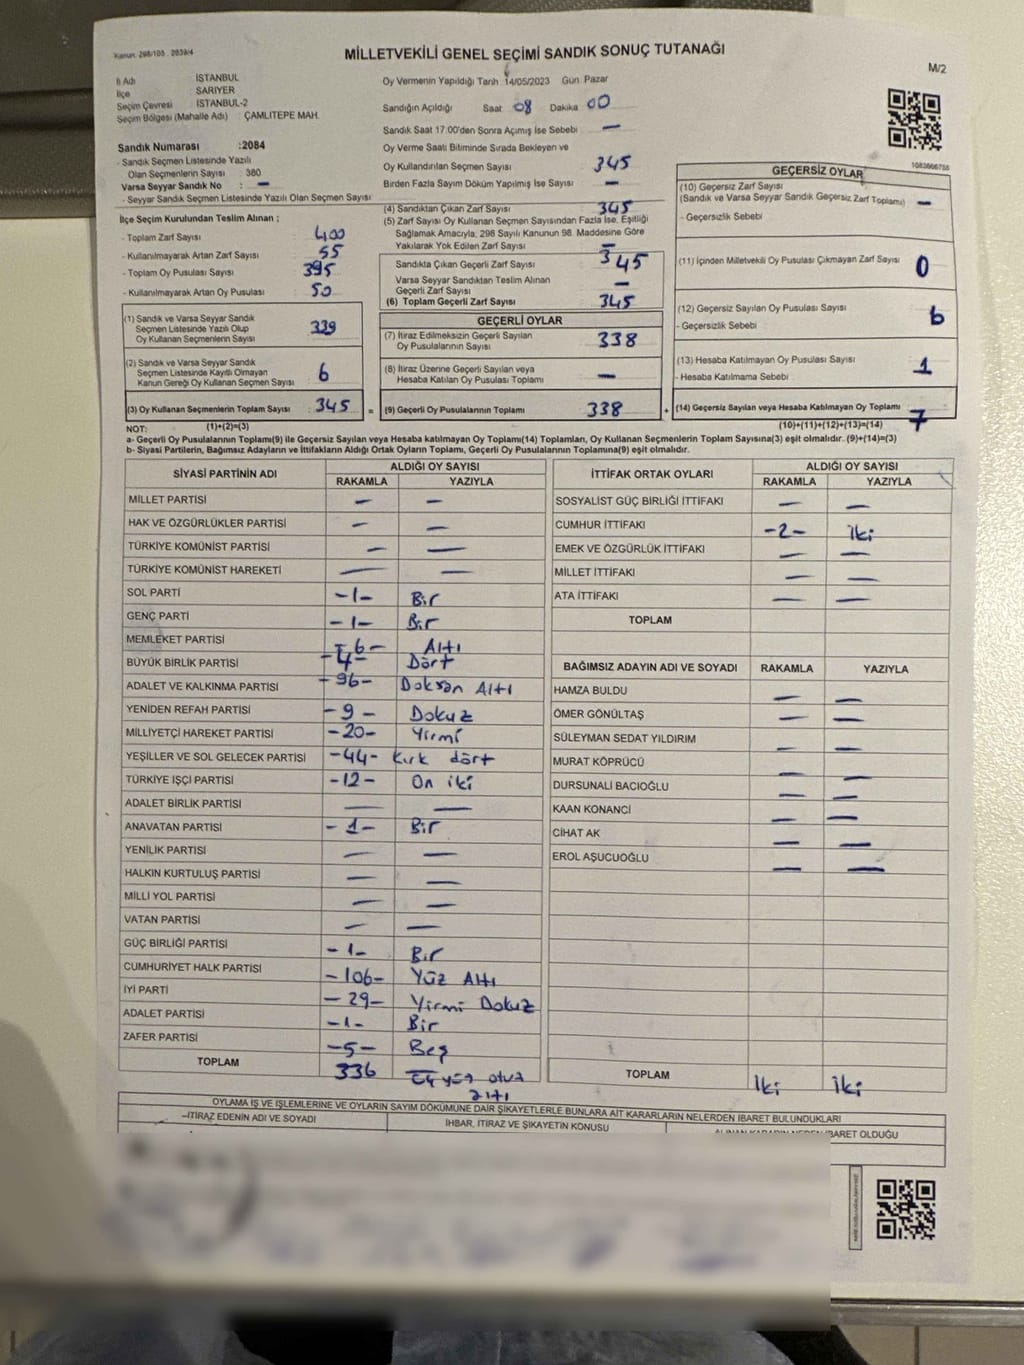 Kanun: 298/105 , 2839/4
MİLLETVEKİLİ GENEL SEÇİMİ SANDIK SONUÇ TUTANAĞI
M/2
İl Adı İSTANBUL
İlçe SARIYER
Seçim Çevresi İSTANBUL-2
Seçim Bölgesi (Mahalle Adı) : ÇAMLITEPE MAH.
Oy Vermenin Yapıldığı Tarih 14/05/2023 Gün Pazar
Sandığın Açıldığı Saat 08 Dakika 00
Sandık Saat 17:00'den Sonra Açımış İse Sebebi —
Sandık Numarası :2084
- Sandık Seçmen Listesinde Yazılı
Olan Seçmenlerin Sayısı : 380
Varsa Seyyar Sandık No : —
- Seyyar Sandık Seçmen Listesinde Yazılı Olan Seçmen Sayısı
Oy Verme Saati Bitiminde Sırada Bekleyen ve
Oy Kullandırılan Seçmen Sayısı 345
Birden Fazla Sayım Döküm Yapılmış İse Sayısı —
1083666755
İlçe Seçim Kurulundan Teslim Alınan ;
- Toplam Zarf Sayısı 400
- Kullanılmayarak Artan Zarf Sayısı 55
- Toplam Oy Pusulası Sayısı 395
- Kullanılmayarak Artan Oy Pusulası 50
(1) Sandık ve Varsa Seyyar Sandık
Seçmen Listesinde Yazılı Olup
Oy Kullanan Seçmenlerin Sayısı 339
(2) Sandık ve Varsa Seyyar Sandık
Listesinde Kayıtlı Olmayan
Kanun Gereği Oy Kullanan Seçmen Sayısı 6
(3) Oy Kullanan Seçmenlerin Toplam Sayısı 345 =
(1)+(2)=(3)
(4) Sandıktan Çıkan Zarf Sayısı 345
(5) Zarf Sayısı Oy Kullanan Seçmen Sayısından Fazla İse, Eşitliği
Sağlamak Amacıyla, 298 Sayılı Kanunun 98. Maddesine Göre
Yakılarak Yok Edilen Zarf Sayısı —
Sandıkta Çıkan Geçerli Zarf Sayısı 345
Varsa Seyyar Sandıktan Teslim Alınan
Geçerli Zarf Sayısı —
(6) Toplam Geçerli Zarf Sayısı 345
GEÇERLİ OYLAR
(7) İtiraz Edilmeksizin Geçerli Sayılan
Oy Pusulalarının Sayısı 338
(8) İtiraz Üzerine Geçerli Sayılan veya
Hesaba Katılan Oy Pusulası Toplamı —
(9) Geçerli Oy Pusulalarının Toplamı 338 +
GEÇERSİZ OYLAR
(10) Geçersiz Zarf Sayısı
(Sandık ve Varsa Seyyar Sandık Geçersiz Zarf Toplamı) —
- Geçersizlik Sebebi
(11) İçinden Milletvekili Oy Pusulası Çıkmayan Zarf Sayısı 0
(12) Geçersiz Sayılan Oy Pusulası Sayısı 6
- Geçersizlik Sebebi
(13) Hesaba Katılmayan Oy Pusulası Sayısı 1
- Hesaba Katılmama Sebebi
(14) Geçersiz Sayılan veya Hesaba Katılmayan Oy Toplamı 7
(10)+(11)+(12)+(13)=(14)
NOT:
a- Geçerli Oy Pusulalarının Toplamı(9) ile Geçersiz Sayılan veya Hesaba katılmayan Oy Toplamı(14) Toplamları, Oy Kullanan Seçmenlerin Toplam Sayısına(3) eşit olmalıdır. (9)+(14)=(3)
b- Siyasi Partilerin, Bağımsız Adayların ve İttifakların Aldığı Ortak Oyların Toplamı, Geçerli Oy Pusulalarının Toplamına(9) eşit olmalıdır.
SİYASİ PARTİNİN ADI ALDIĞI OY SAYISI
RAKAMLA YAZIYLA
MİLLET PARTİSİ — —
HAK VE ÖZGÜRLÜKLER PARTİSİ — —
TÜRKİYE KOMÜNİST PARTİSİ — —
TÜRKİYE KOMÜNİST HAREKETİ — —
SOL PARTİ -1- Bir
GENÇ PARTİ -1- Bir
MEMLEKET PARTİSİ -6- Altı
BÜYÜK BİRLİK PARTİSİ -4- Dört
ADALET VE KALKINMA PARTİSİ -96- Doksan Altı
YENİDEN REFAH PARTİSİ -9- Dokuz
MİLLİYETÇİ HAREKET PARTİSİ -20- Yirmi
YEŞİLLER VE SOL GELECEK PARTİSİ -44- Kırk dört
TÜRKİYE İŞÇİ PARTİSİ -12- On iki
ADALET BİRLİK PARTİSİ — —
ANAVATAN PARTİSİ -1- Bir
YENİLİK PARTİSİ — —
HALKIN KURTULUŞ PARTİSİ — —
MİLLİ YOL PARTİSİ — —
VATAN PARTİSİ — —
GÜÇ BİRLİĞİ PARTİSİ -1- Bir
CUMHURİYET HALK PARTİSİ -106- Yüz Altı
İYİ PARTİ -29- Yirmi Dokuz
ADALET PARTİSİ -1- Bir
ZAFER PARTİSİ -5- Beş
TOPLAM 336 Üç yüz otuz
altı
İTTİFAK ORTAK OYLARI ALDIĞI OY SAYISI
RAKAMLA YAZIYLA
SOSYALİST GÜÇ BİRLİĞİ İTTİFAKI — —
CUMHUR İTTİFAKI -2- iki
EMEK VE ÖZGÜRLÜK İTTİFAKI — —
MİLLET İTTİFAKI — —
ATA İTTİFAKI — —
TOPLAM
BAĞIMSIZ ADAYIN ADI VE SOYADI RAKAMLA YAZIYLA
HAMZA BULDU — —
ÖMER GÖNÜLTAŞ — —
SÜLEYMAN SEDAT YILDIRIM — —
MURAT KÖPRÜCÜ — —
DURSUNALİ BACIOĞLU — —
KAAN KONANCİ — —
CİHAT AK — —
EROL AŞUCUOĞLU — —
TOPLAM İki İki
OYLAMA İŞ VE İŞLEMLERİNE VE OYLARIN SAYIM DÖKÜMÜNE DAİR ŞİKAYETLERLE BUNLARA AİT KARARLARIN NELERDEN İBARET BULUNDUKLARI
İTİRAZ EDENİN ADI VE SOYADI İHBAR, İTİRAZ VE ŞİKAYETİN KONUSU İBARET OLDUĞU